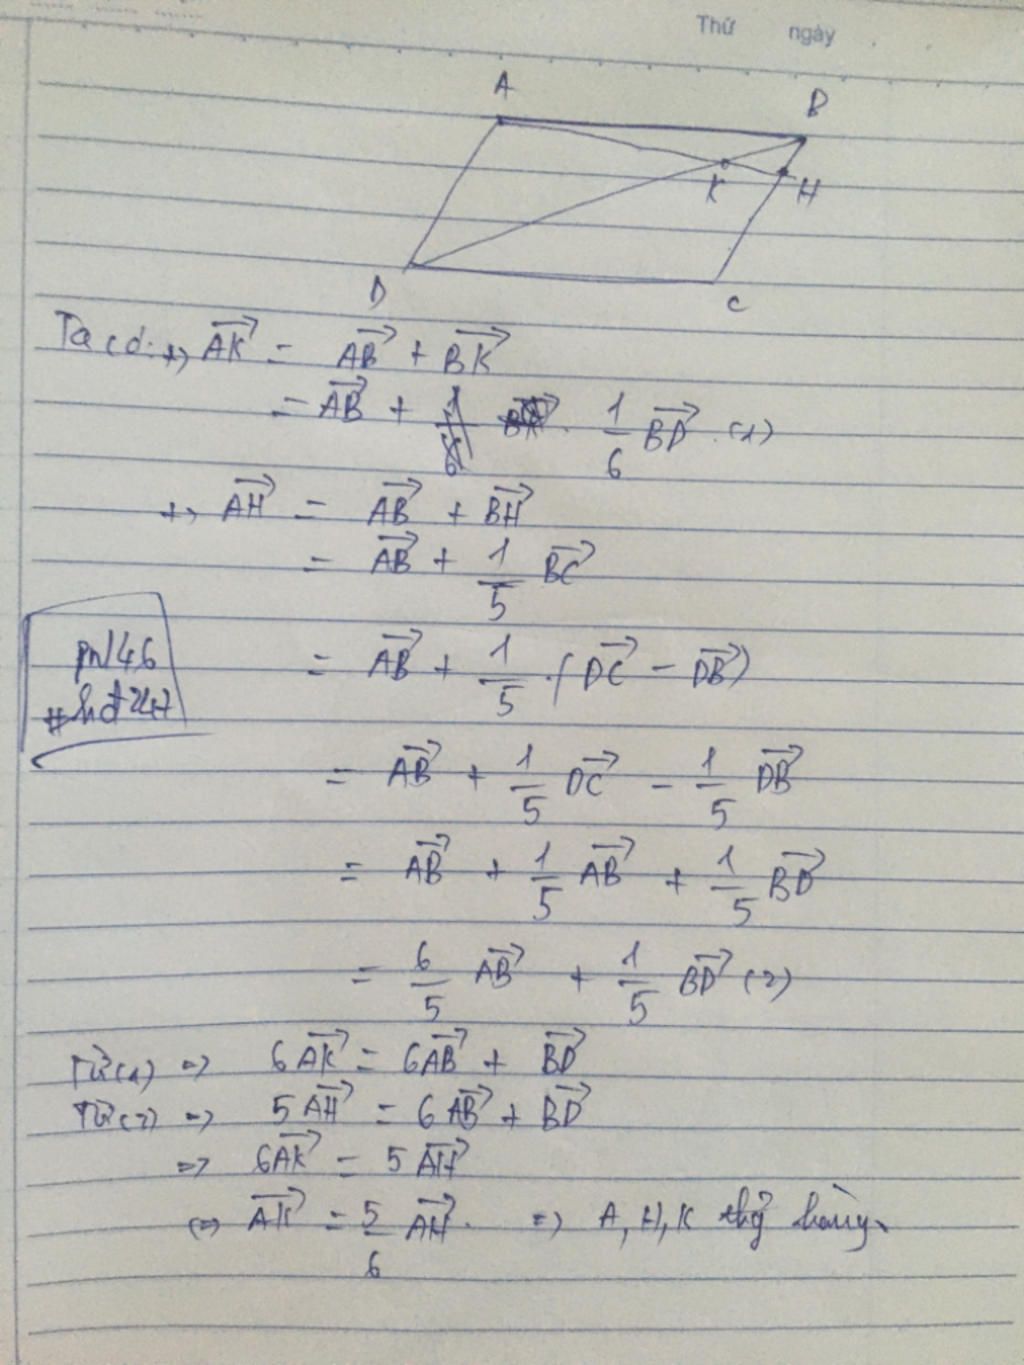 Thứ ngày
A
B
K
H
D
C
Ta có: +, AK→ = AB→ + BK→
= AB→ + 1/6 BD→ (1)
+, AH→ = AB→ + BH→
= AB→ + 1/5 BC→
= AB→ + 1/5 . (DC→ - DB→)
pn146
#hđ247
= AB→ + 1/5 DC→ - 1/5 DB→
= AB→ + 1/5 AB→ + 1/5 BD→
= 6/5 AB→ + 1/5 BD→ (2)
Từ (1) => 6AK→ = 6AB→ + BD→
Từ (2) => 5AH→ = 6AB→ + BD→
=> 6AK→ = 5AH→
<=> AK→ = 5/6 AH→. => A, H, K thẳng hàng.